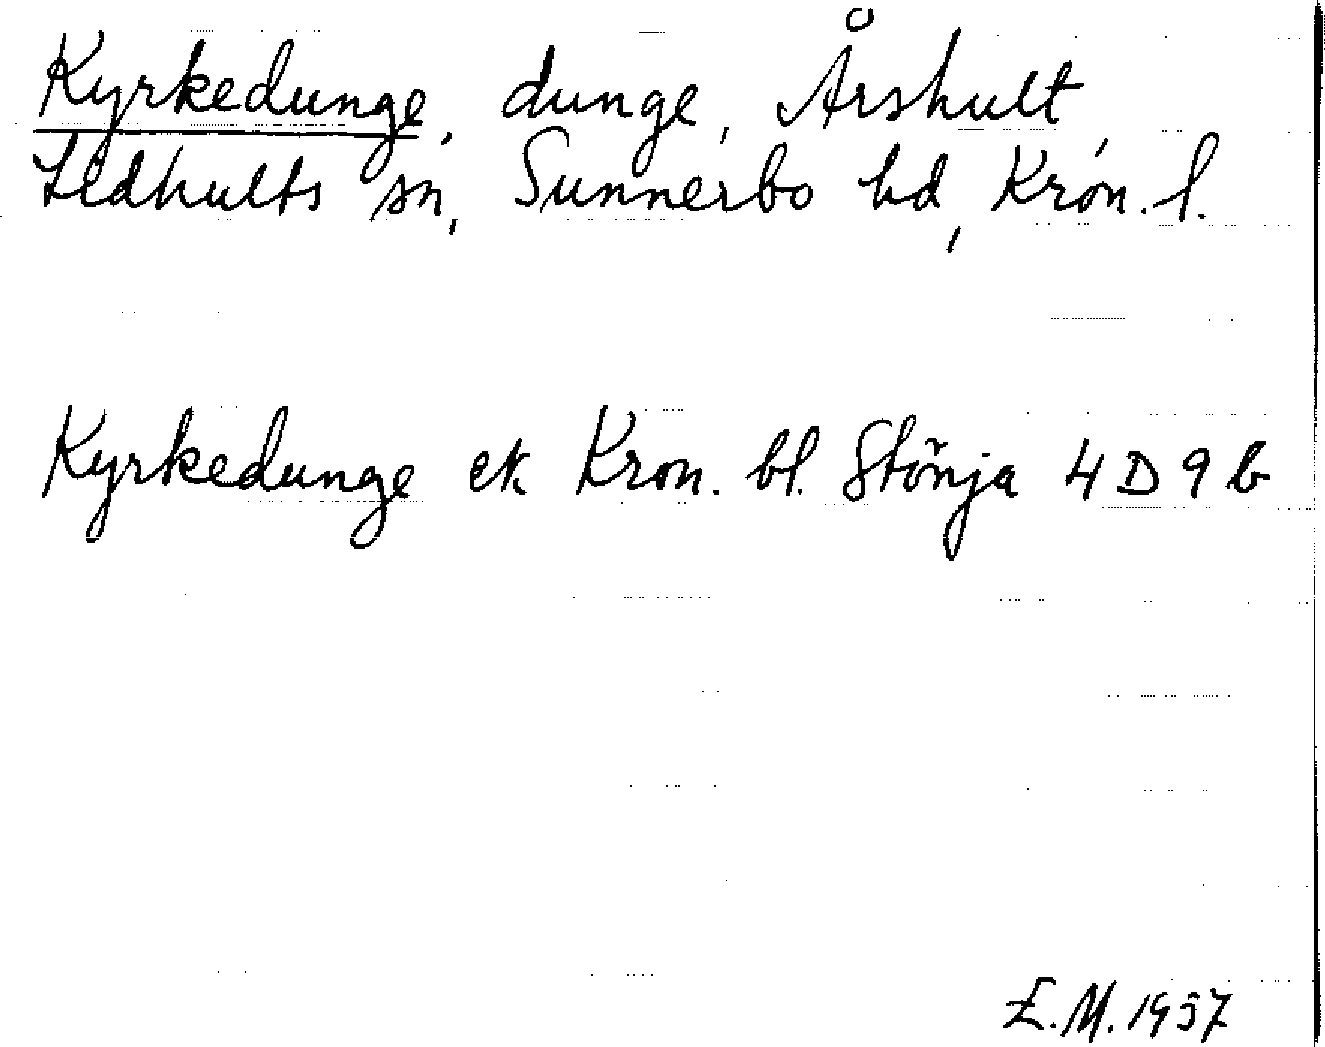 Kyrkedunge, dunge, Årshult
Lidhults sn, Sunnerbo hd, Kron. l.
Kyrkedunge ek Kron. bl. Stönja 4 D 9 b
E. M. 1957